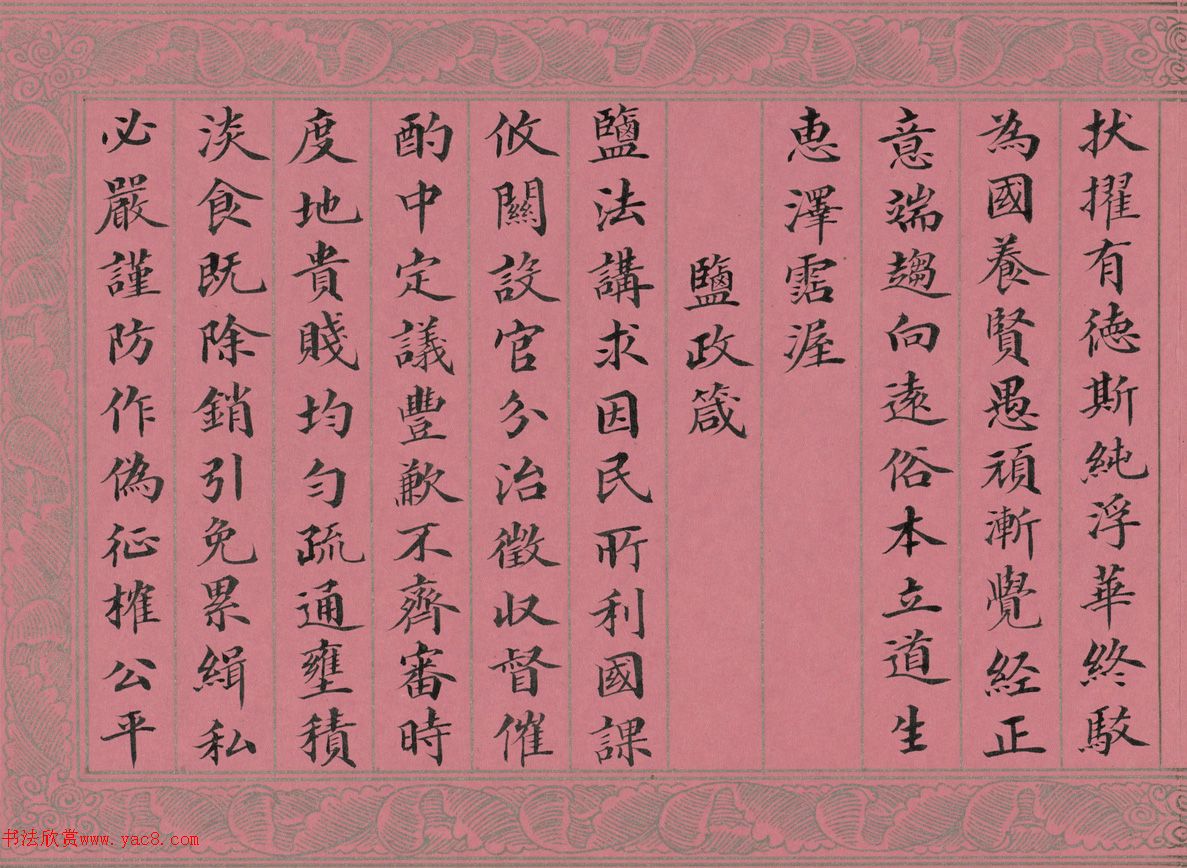 狀擢有德斯純浮華終駁
為國養賢愚頑漸覺經正
意端趨向遠俗本立道生
恵澤霑渥
鹽政箴
鹽法講求因民所利國課
攸關設官分治徵收督催
酌中定議豐歉不齊審時
度地貴賤均勻疏通壅積
淡食既除銷引免累緝私
必嚴謹防作偽征榷公平
书法欣赏www.yac8.com